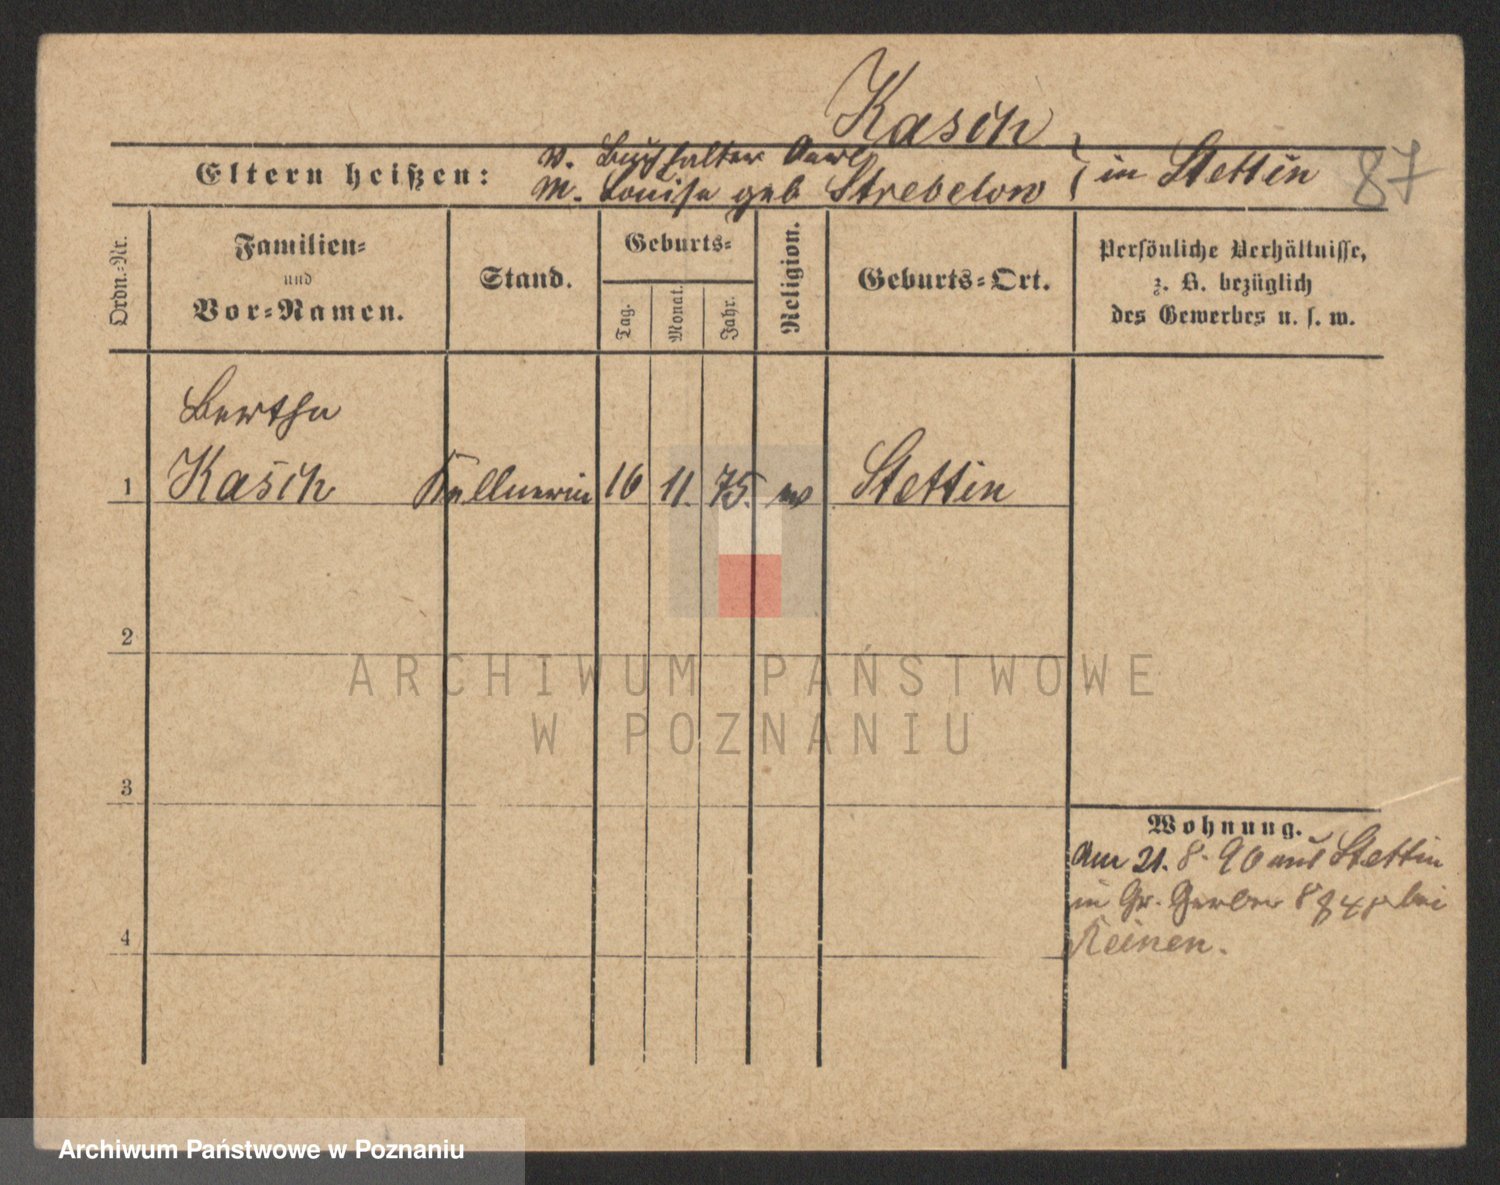 Kasch
Eltern heißen:
V. Buchhalter Carl
M. Louise geb Strebelow
in Stettin
87
Ordn.-Nr.
Familien-
und
Vor-Namen.
Stand.
Geburts-
Tag.
Monat.
Jahr.
Religion.
Geburts-Ort.
Persönliche Verhältnisse,
z. B. bezüglich
des Gewerbes u. s. w.
Bertha
1 Kasch Kellnerin 16 11. 75. Stettin
2
3
4
Wohnung.
Am 21. 8. 96 aus Stettin
in Gr. Gerber 8 bei
Reinen.
ARCHIWUM PAŃSTWOWE
W POZNANIU
Archiwum Państwowe w Poznaniu